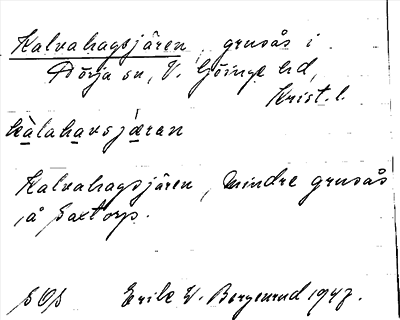 Kalvahagsjären, grusås i
Dörja sn, V. Göinge hd,
Krist. l.
kàlahavsjæran
Kalvahagsjären, mindre grusås
på Saxtorp.
Erik W. Borgenrud 1947.